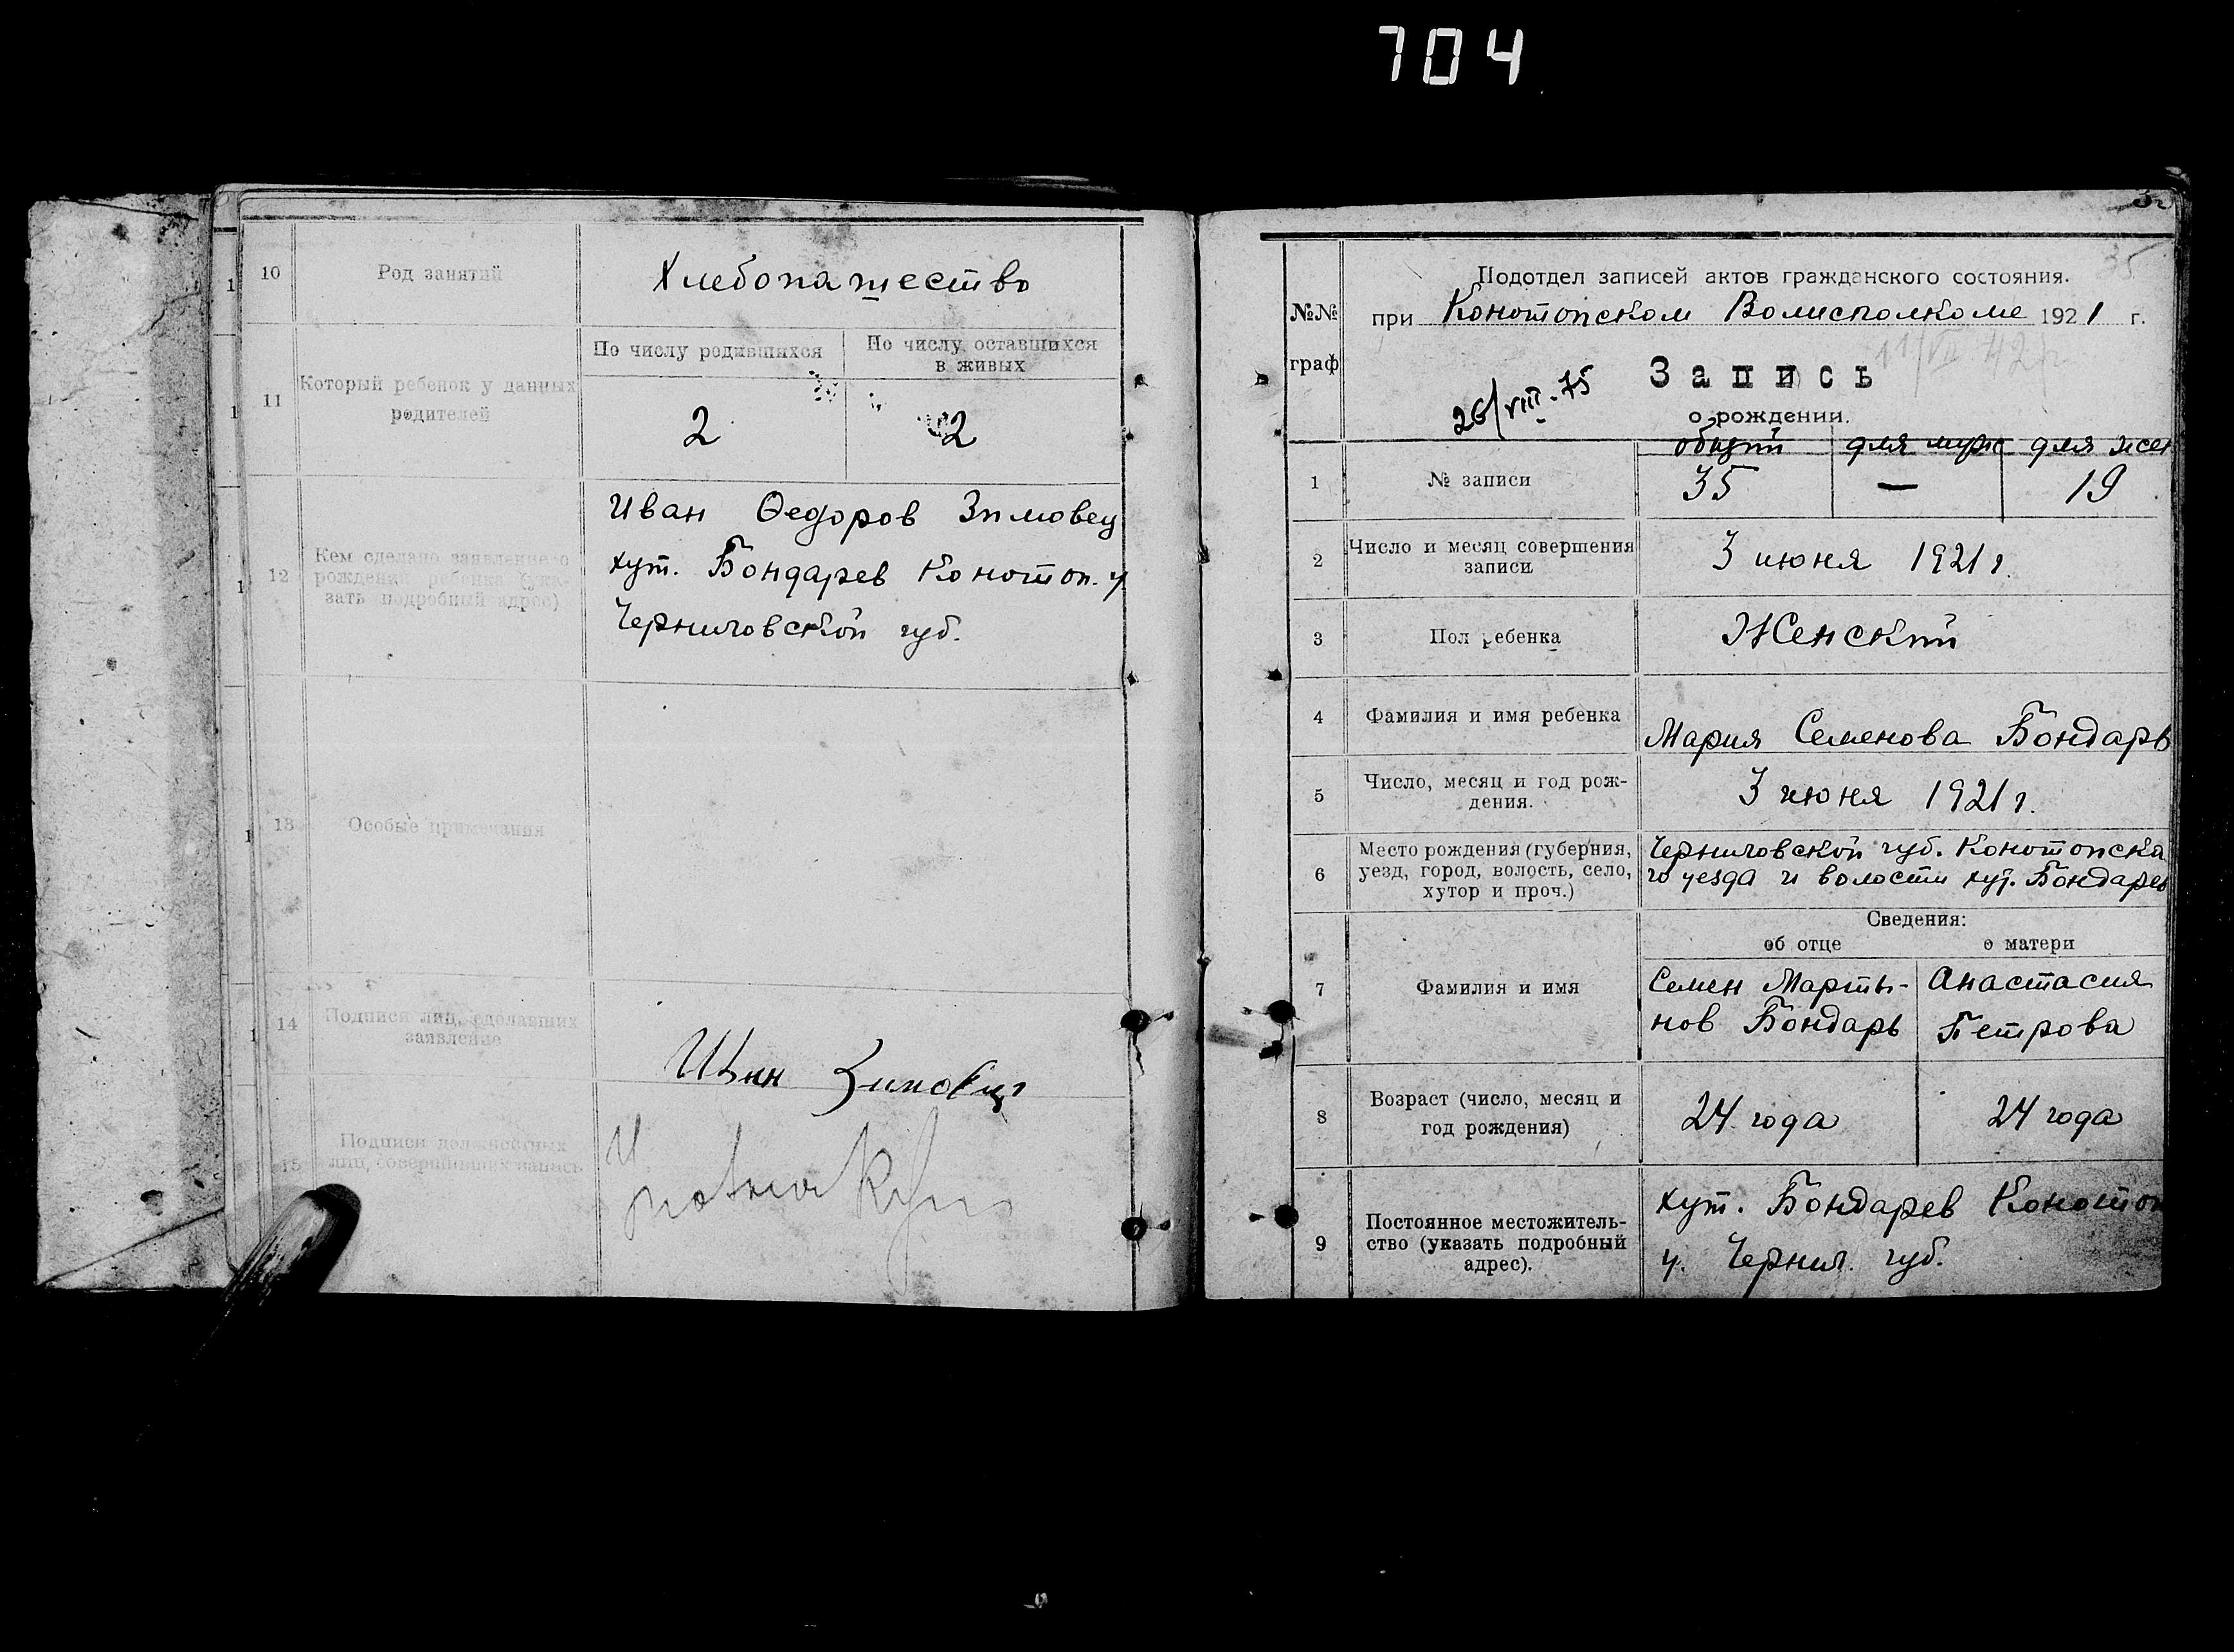 704
10
Род занятий
Хлебопашество
11
Который ребенок у данных
родителей
По числу родившихся
По числу оставшихся
в живых
2
2
12
Кем сделано заявление о
рождении ребенка (ука-
зать подробный адрес)
Иван Федоров Зимовец
хут. Бондарев Конотоп. у
Черниговской губ.
13
Особые примечания
14
Подписи лиц, сделавших
заявление
Иван
15
Подписи должностных
лиц, совершивших запись
35
Подотдел записей актов гражданского состояния.
при Конотопском Волисполкоме 1921 г.
№№
граф
Запись
о рождении.
26/VIII-75
11/VII 42 г
общий для муж для жен
1
№ записи
35 — 19
2
Число и месяц совершения
записи
3 июня 1921 г.
3
Пол ребенка
Женский
4
Фамилия и имя ребенка
Мария Семенова Бондарь
5
Число, месяц и год рож-
дения.
3 июня 1921 г.
6
Место рождения (губерния,
уезд, город, волость, село,
хутор и проч.)
Черниговской губ. Конотопска
го уезда и волости хут. Бондарев
Сведения:
об отце
о матери
7
Фамилия и имя
Семен Марты-
нов Бондарь
Анастасия
Петрова
8
Возраст (число, месяц и
год рождения)
24 года
24 года
9
Постоянное местожитель-
ство (указать подробный
адрес).
хут. Бондарев Конотоп
у. Черниг. губ.